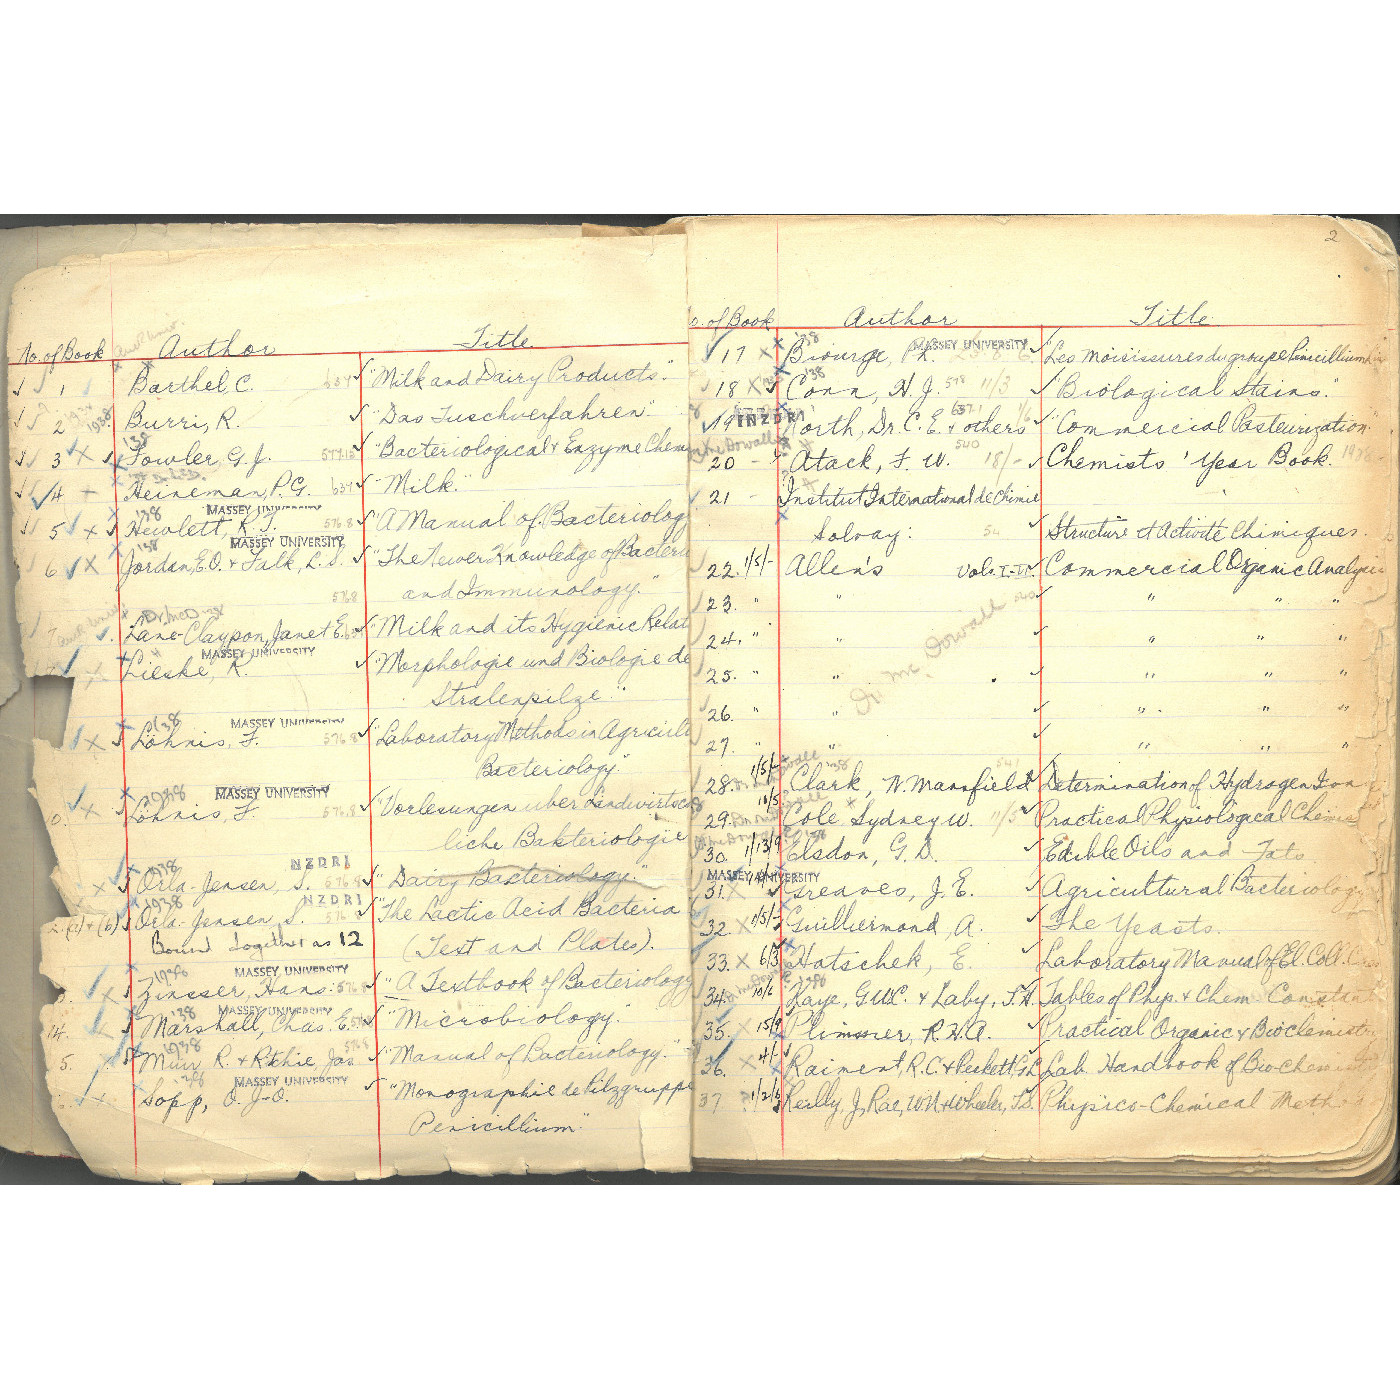 No. of Book Author Title
1 Barthel, C. 637 "Milk and Dairy Products."
2 1938 Burri, R. "Das Tuschverfahren."
'38
3 Fowler, G. J. 577.15 "Bacteriological & Enzyme Chem
4 Heineman, P. G. 637 "Milk."
MASSEY UNIVERSITY
'38
5 Hewlett, R. T. 576.8 "A Manual of Bacteriolog
MASSEY UNIVERSITY
'38
6 Jordan, E.O. & Falk, L. S. "The Newer Knowledge of Bacteri
576.8 and Immunology."
Dr. McD
7 Lane-Claypon, Janet E. 637 "Milk and its Hygienic Relat
MASSEY UNIVERSITY
Lieske, R. "Morphologie und Biologie de
Stralenpilze."
1938 MASSEY UNIVERSITY
Löhnis, F. 576.8 "Laboratory Methods in Agricult
Bacteriology."
1938 MASSEY UNIVERSITY
10. Löhnis, F. 576.8 "Vorlesungen uber Landwirtsc
liche Bakteriologie
1938 NZDRI
Orla-Jensen, S. 576.8 "Dairy Bacteriology."
1938 NZDRI
2. (a) + (b) Orla-Jensen, S. 576.8 "The Lactic Acid Bacteria
Bound together as 12 (Text and Plates).
1938 MASSEY UNIVERSITY
3. Zinsser, Hans. 576.8 "A Textbook of Bacteriology
'38 MASSEY UNIVERSITY
14. Marshall, Chas. E. 576 "Microbiology."
1938
5. Muir R. & Ritchie, Jas. 576.8 "Manual of Bacteriology."
'38 MASSEY UNIVERSITY
Sopp, O. J-O. "Monographie de Pilzgruppe
Penicillium."
2
o. of Book Author Title
'38 MASSEY UNIVERSITY
17 Biourge, Ph. "Les moisissures du groupe Penicillium
'38
18 Conn, H. J. 578 11/3 "Biological Stains."
INZDRI 637.1 1/6
19 North, Dr. C. E. & others "Commercial Pasteurization."
McDowall 540
20 - Atack, F. W. 18/- Chemists' Year Book. 1928
21 - Institut International de Chimie
Solvay. 54 Structure et Activité Chimiques.
22. 1/5/- Allen's Vols. I-VI. Commercial Organic Analysis
23. " " " " "
24. " " " " "
25. " " " " "
26. " " " " "
27. " " " " "
Dr. McDowall
1/5/- '38 541
28. Clark, W. Mansfield Determination of Hydrogen Ion
10/5
29. Cole, Sydney W. 11/5 Practical Physiological Chemis
'38
30. 1/13/9 Elsdon, G. D. Edible Oils and Fats.
MASSEY UNIVERSITY
31. Greaves, J. E. Agricultural Bacteriology
32. 1/5/- Guilliermond, A. The Yeasts.
33. 6/3 Hatschek, E. Laboratory Manual of El. Coll. Chem
34. 10/6 Kaye, G.W.C. & Laby, T.H. Tables of Phys. & Chem Constant
35. 15/9 Plimmer, R. H. A. Practical Organic & Biochemistr
36. 4/- Raiment, R.C. & Peskett G.L. Lab. Handbook of Bio-chemist
37 1/2/6 Reilly, J, Rae, W.N & Wheeler, T.S. Physico-Chemical Metho